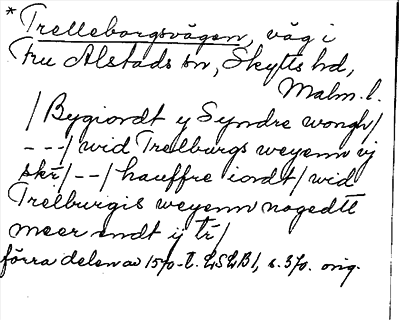 * Trelleborgsvägen, väg i
Fru Alstads sn, Skytts hd,
Malm. l.
/ Bygiordt y Syndre wongh /
---/ wid Trelburgs weyenn vj
skr/--/ hauffre iordt/ wid
Trelburgis weyenn nogedtt
meer endt ij tr/
förra delen av 1570-t. LSLB1, s. 370. orig.